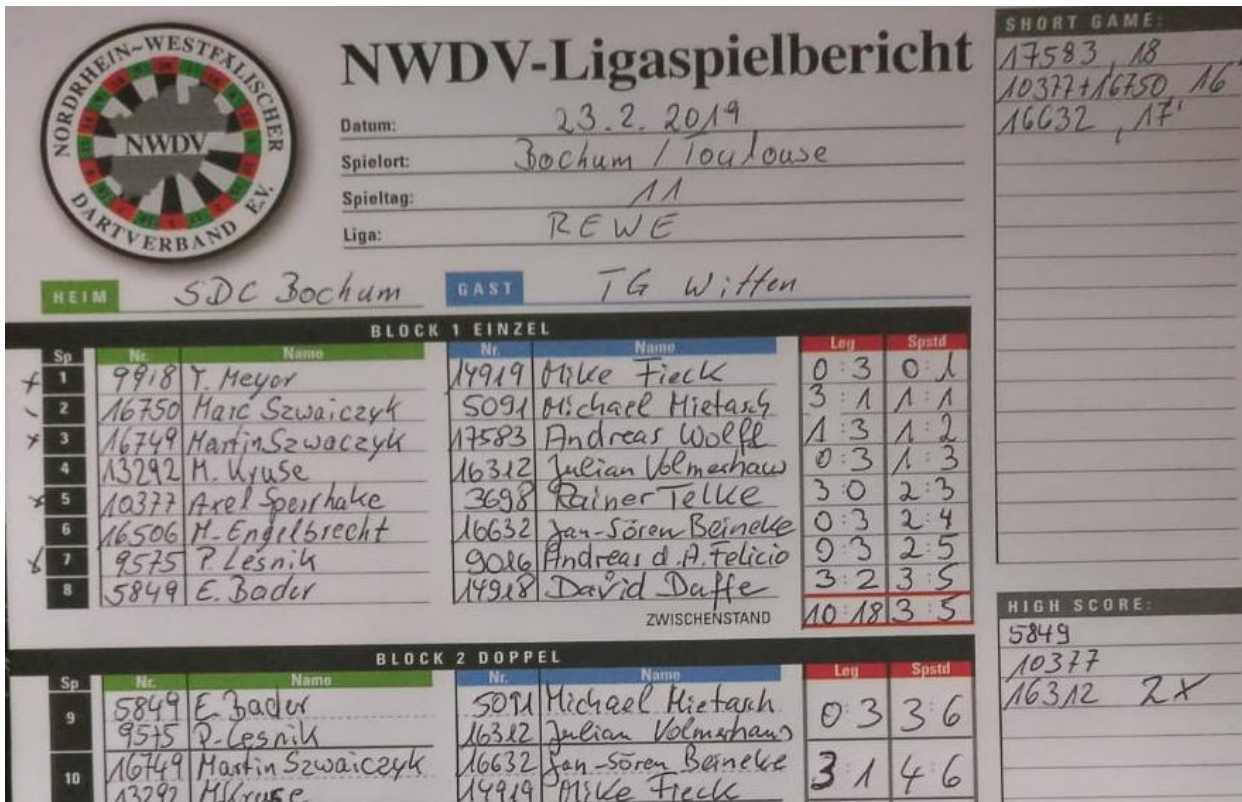 NORDRHEIN~WESTFÄLISCHER
NWDV
DARTVERBAND E.V.
NWDV-Ligaspielbericht
Datum: 23.2.2019
Spielort: Bochum / Toulouse
Spieltag: 11
Liga: REWE
HEIM SDC Bochum GAST TG Witten
SHORT GAME:
17583, 18
10377+16750, 16
16632, 17
BLOCK 1 EINZEL
Sp Nr. Name Nr. Name Leg Spstd
1 9918 T. Meyor 14919 Mike Fieck 0:3 0:1
2 16750 Marc Szwaiczyk 5091 Michael Mietasch 3:1 1:1
3 16749 Martin Szwaczyk 17583 Andreas Wolff 1:3 1:2
4 13292 M. Kruse 16312 Julian Volmerhaus 0:3 1:3
5 10377 Axel Sperrhake 3698 Rainer Telke 3:0 2:3
6 16506 M. Engelbrecht 16632 Jan-Sören Beineke 0:3 2:4
7 9575 P. Lesnik 9016 Andreas d. A. Felicio 0:3 2:5
8 5849 E. Bader 14918 David Daffe 3:2 3:5
ZWISCHENSTAND 10:18 3:5
HIGH SCORE:
5849
10377
16312 2x
BLOCK 2 DOPPEL
Sp Nr. Name Nr. Name Leg Spstd
9 5849 E. Bader 5091 Michael Mietasch 0:3 3:6
9575 P. Lesnik 16312 Julian Volmerhaus
10 16749 Martin Szwaiczyk 16632 Jan-Sören Beineke 3:1 4:6
13292 M. Kruse 14919 Mike Fieck